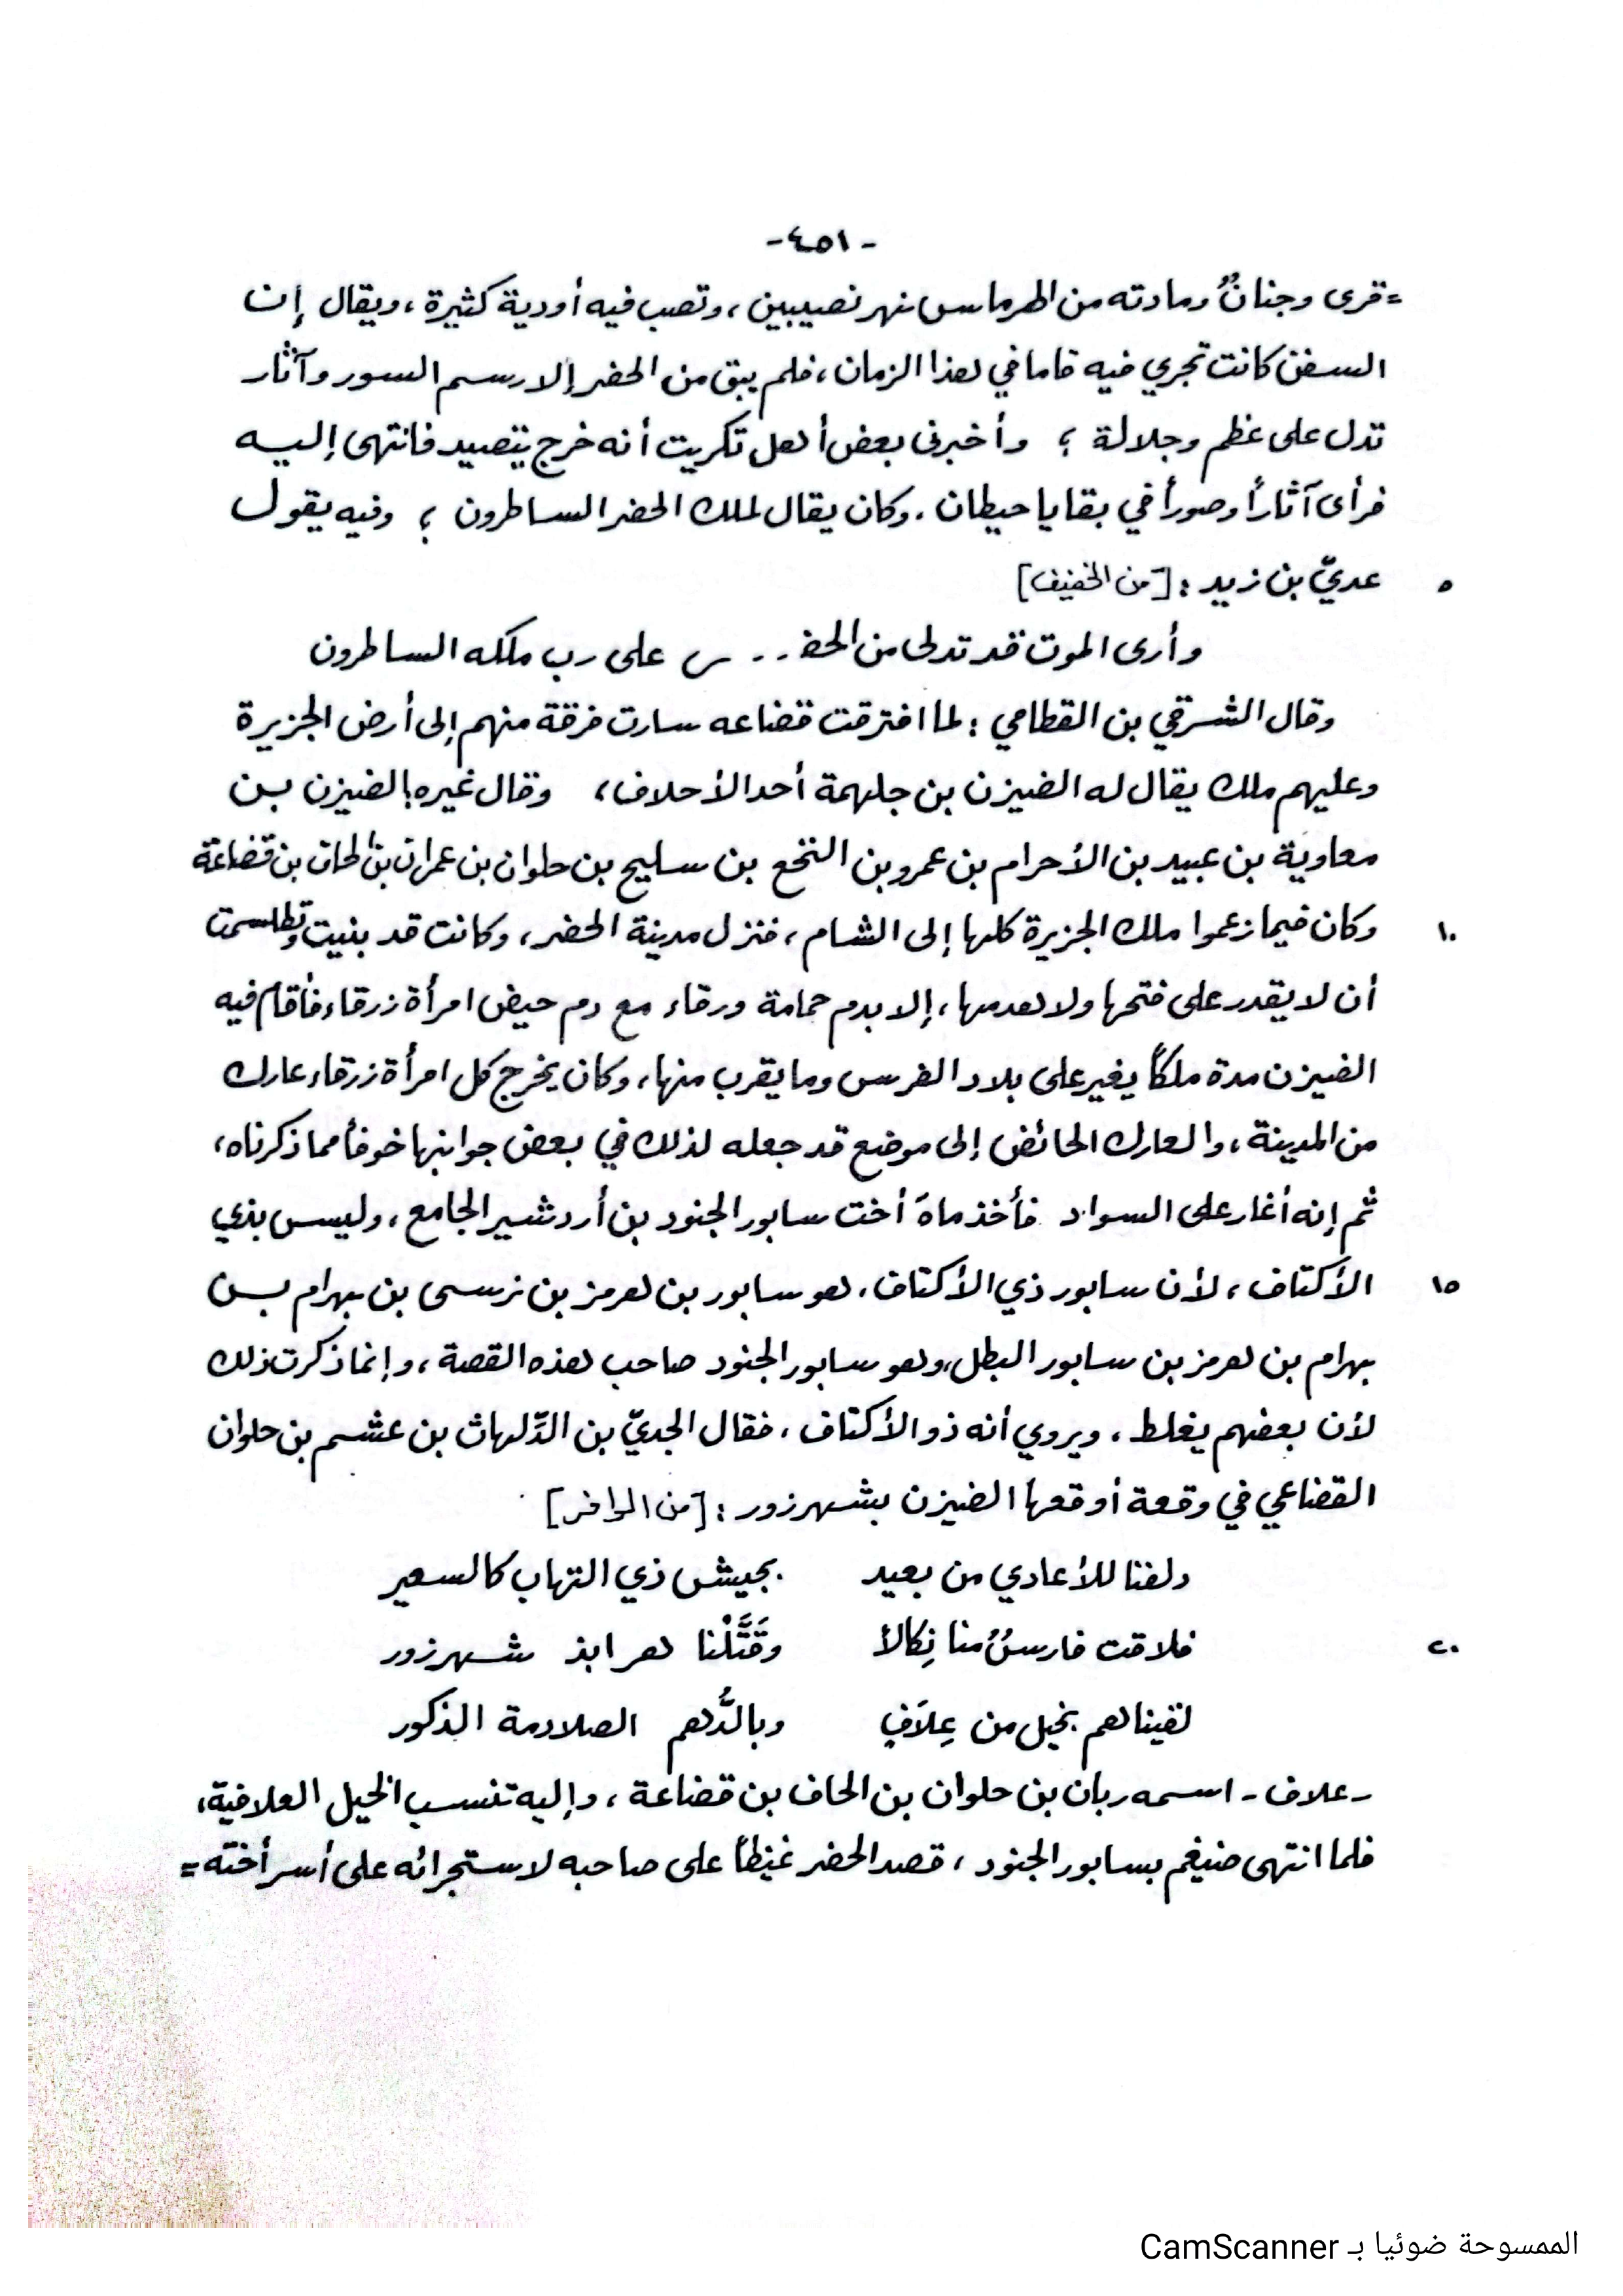 -٤٥١-
=قرى وجنانٌ ومادته من الهرماس نهر نصيبين، وتصب فيه أودية كثيرة، ويقال إن
السفن كانت تجري فيه فاما في هذا الزمان، فلم يبق من الحضر إلا رسم السور وآثار
تدل على عظم وجلالة ؛ وأخبرني بعض أهل تكريت أنه خرج يتصيد فانتهى إليه
فرأى آثاراً وصوراً في بقايا حيطان. وكان يقال لملك الحضر الساطرون ؛ وفيه يقول
٥ عديّ بن زيد : [من الخفيف]
وأرى الموت قد تدلى من الحضـ .. ـر على رب ملكه الساطرون
وقال الشرقي بن القطامي : لما افترقت قضاعه سارت فرقة منهم إلى أرض الجزيرة
وعليهم ملك يقال له الضيزن بن جلهمة أحد الأحلاف، وقال غيره: الضيزن بن
معاوية بن عبيد بن الأحرام بن عمرو بن النخع بن سليح بن حلوان بن عمران بن الحاف بن قضاعة
١٠ وكان فيما زعموا ملك الجزيرة كلها إلى الشام، فنزل مدينة الحضر، وكانت قد بنيت وتطلسمت
أن لا يقدر على فتحها ولا هدمها، إلا بدم حمامة ورقاء مع دم حيض امرأة زرقاء فأقام فيه
الضيزن مدة ملكاً يغير على بلاد الفرس وما يقرب منها، وكان يخرج كل امرأة زرقاء عارك
من المدينة، والعارك الحائض إلى موضع قد جعله لذلك في بعض جوانبها خوفاً مما ذكرناه،
ثم إنه أغار على السواد فأخذ ماهَ أخت سابور الجنود بن أردشير الجامع، وليس بذي
١٥ الأكتاف، لأن سابور ذي الأكتاف، هو سابور بن هرمز بن نرسي بن بهرام بن
بهرام بن هرمز بن سابور البطل، وهو سابور الجنود صاحب هذه القصة، وإنما ذكرت ذلك
لأن بعضهم يغلط، ويروي أنه ذو الأكتاف، فقال الجديّ بن الدِّلهاث بن عشم بن حلوان
القضاعي في وقعة أوقعها الضيزن بشهرزور : [من الوافر]
دلفنا للأعادي من بعيد بجيش ذي التهاب كالسعير
٢٠ فلاقت فارسٌ منا نِكالاً وقَتَّلْنا هرابذ شهرزور
لقيناهم بخيل من عِلاَفٍ وبالدُّهم الصلادمة الذكور
- علاف - اسمه ربان بن حلوان بن الحاف بن قضاعة، وإليه تنسب الخيل العلافية،
فلما انتهى ضيغم بسابور الجنود، قصد الحضر غيظاً على صاحبه لاستجرائه على أسر أخته =
الممسوحة ضوئيا بـ CamScanner